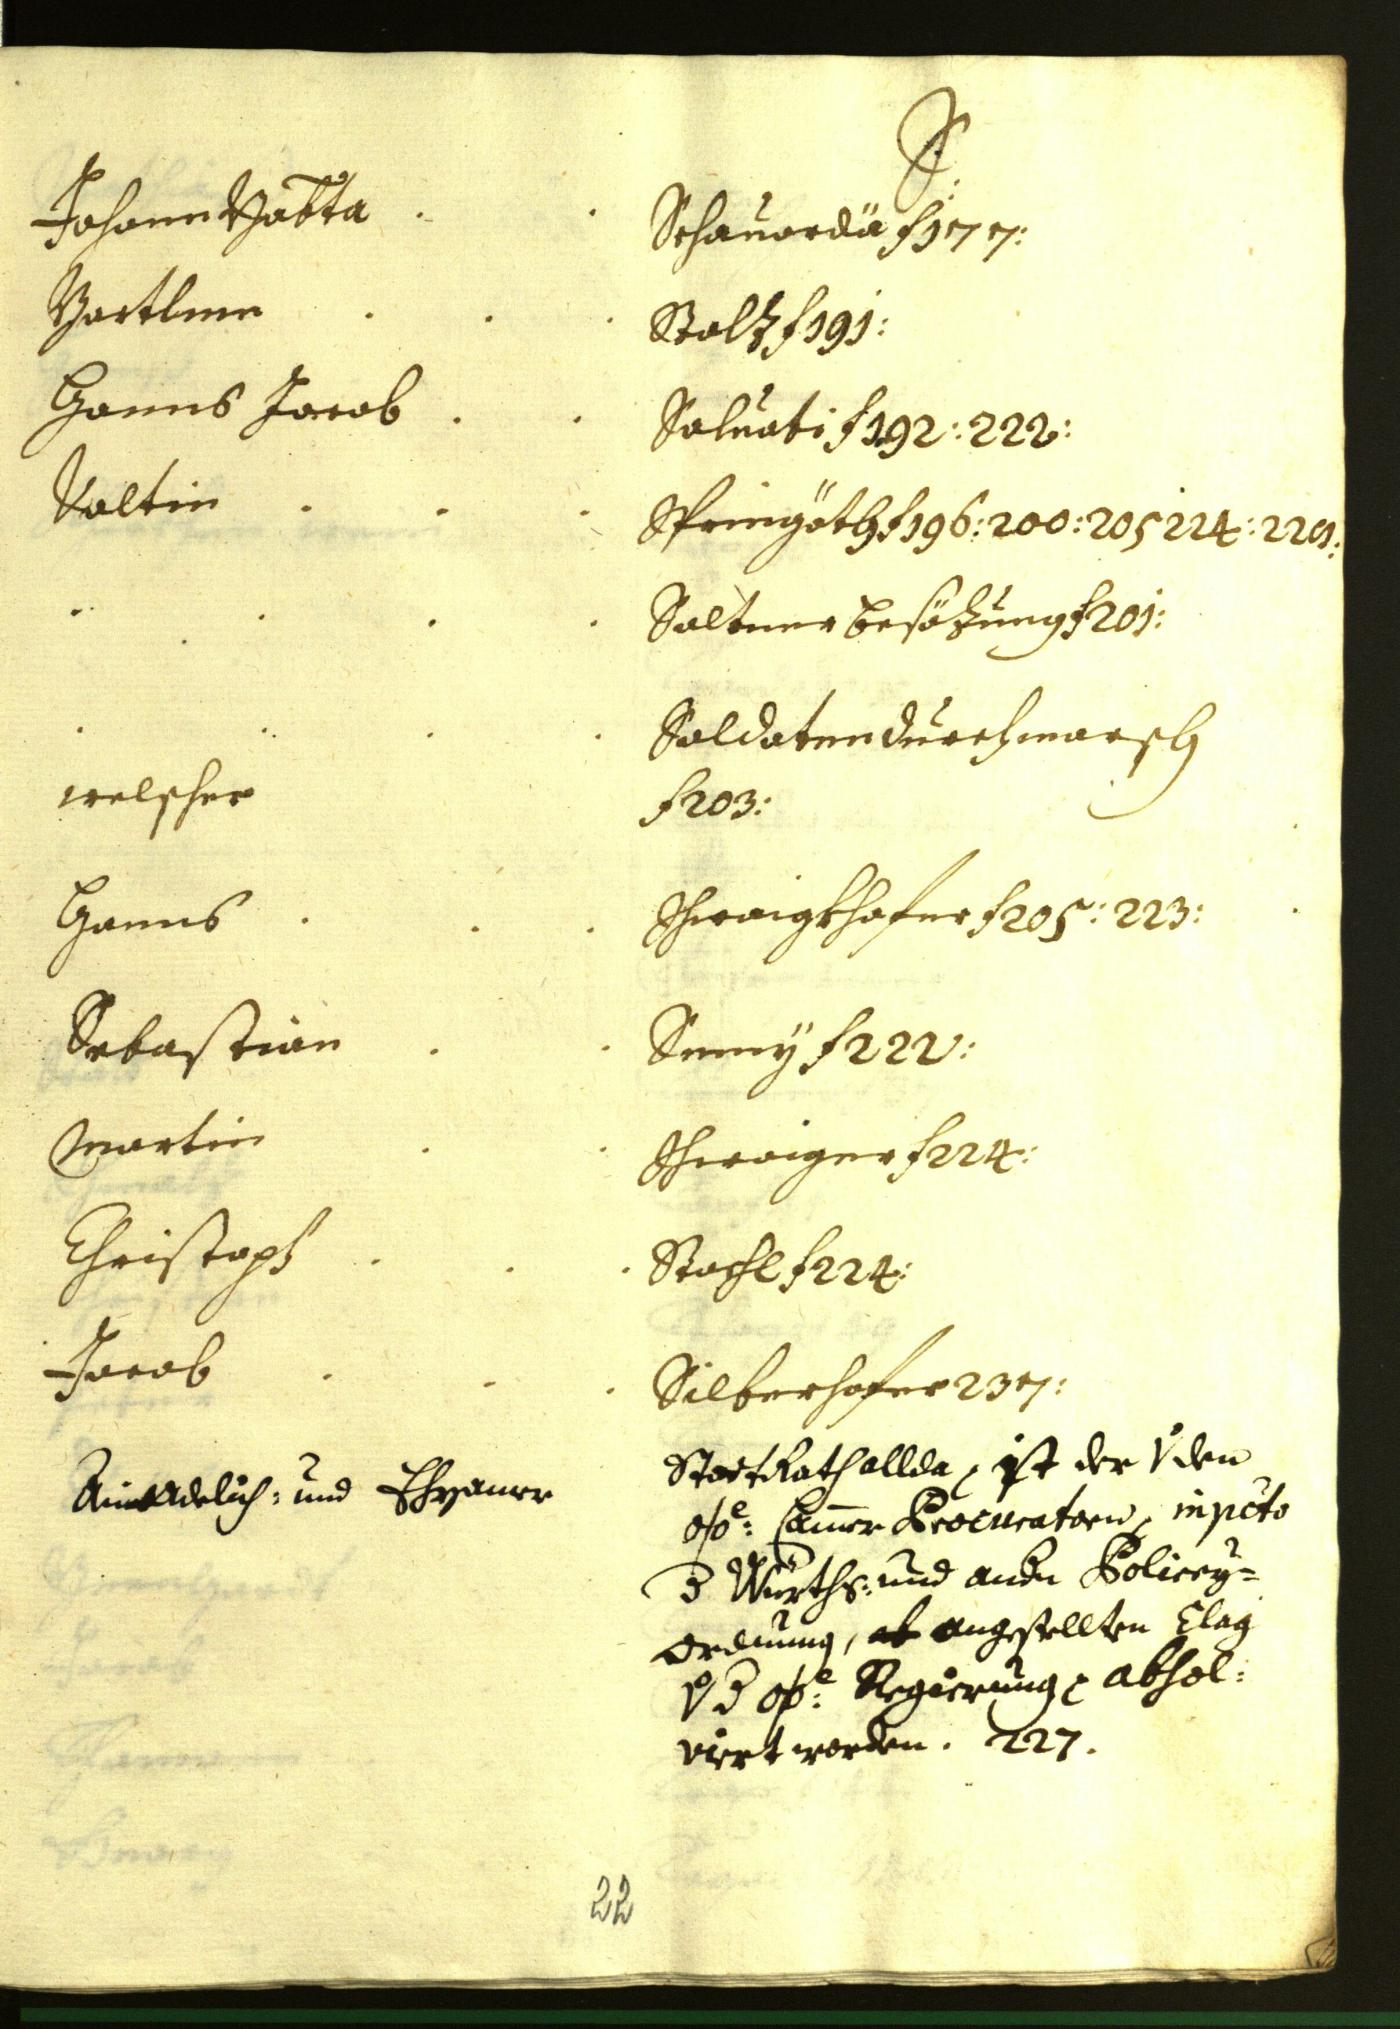 S.
Johann Babta . . Schauordä f 177:
Bartlme . . . Stolz f 191:
Hanns Jacob . . Saluati f 192: 222:
Valtin . . . Springöth f 196: 200: 205 224: 229:
Saltner besözung f 201:
Soldaten durchmarsch
welscher f 203:
Hanns . . . Schwaigkhofer f 205: 223:
Sebastian . . Semÿ f 222:
Martin . . Schwaiger f 224:
Christoph . . . Stachl f 224:
Jacob . . . Silberhofer 237:
Ain Adelich: und Ehrsamer StattRath allda, ist der v den
o/ö: Camer Procuratorn, in pcto
d Würths: und andn Policey=
Ordnung, angestellten Clag
v d o/ö: Regierung, absol:
viert worden. 227.
22